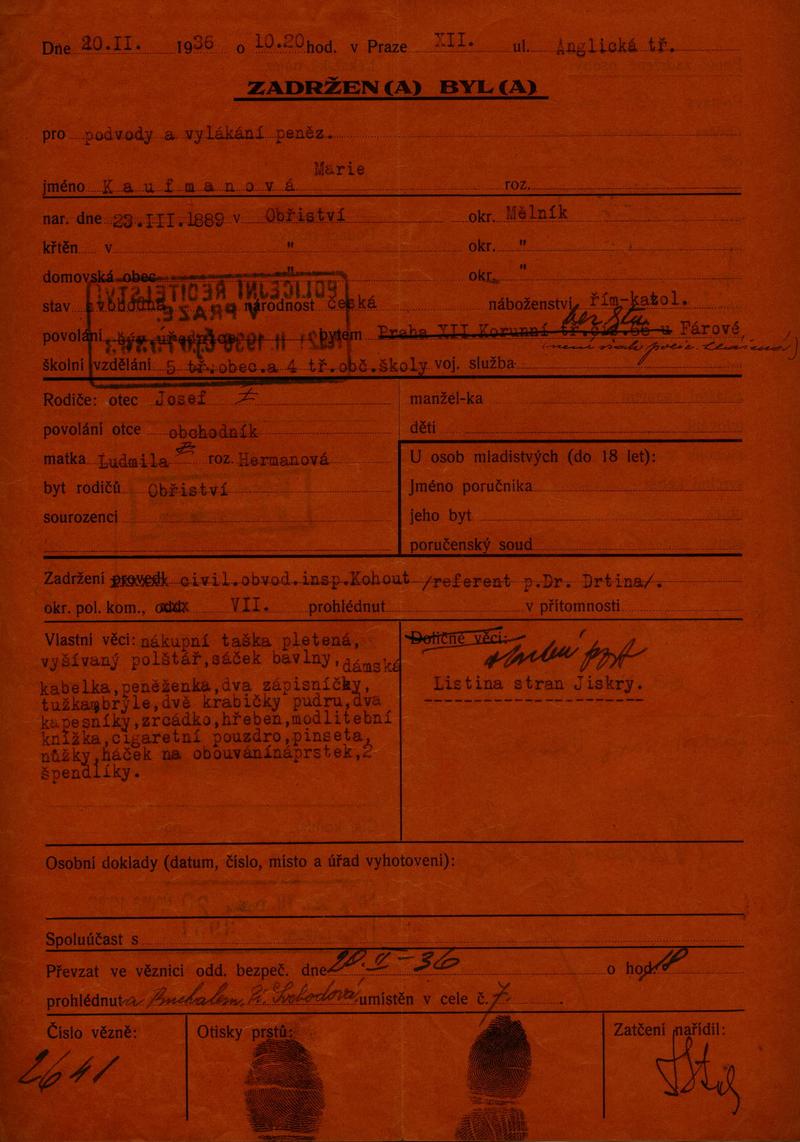 Dne 20.II. 1936 o 10.20 hod. v Praze XII. ul. Anglická tř.
ZADRŽEN(A) BYL(A)
pro podvody a vylákání peněz.
Marie
jméno Kaufmanová roz.
nar. dne 23.III.1889 v Obříství okr. Mělník
křtěn v " okr. "
domovská obec " okr. "
stav svobodná národnost česká náboženství řím-katol.
povolání bytem Praha XII Korunní tř. u Fárové,
školní vzdělání 5 tř.obec.a 4 tř.obč.školy voj. služba
Rodiče: otec Josef
manžel-ka
povolání otce obchodník
děti
matka Ludmila roz. Hermanová
U osob mladistvých (do 18 let):
byt rodičů Obříství
Jméno poručníka
sourozenci
jeho byt
poručenský soud
Zadržení civil.obvod.insp.Kohout /referent p.Dr. Drtina/.
okr. pol. kom., VII. prohlédnut v přítomnosti
Vlastní věci: nákupní taška pletená,
vyšívaný polštář,sáček bavlny,dámská
kabelka,peněženka,dva zápisníčky,
tužka,brýle,dvě krabičky pudru,dva
kapesníky,zrcádko,hřeben,modlitební
knížka,cigaretní pouzdro,pinseta,
nůžky,háček na obouvánínáprstek,2
špendlíky.
Dotičné věci:
Listina stran Jiskry.
Osobní doklady (datum, číslo, místo a úřad vyhotovení):
Spoluúčast s
Převzat ve věznici odd. bezpeč. dne 20.II-36 o hod 18
prohlédnuta Svobodová umístěn v cele č. 7
Číslo vězně:
Otisky prstů:
Zatčení nařídil:
2641